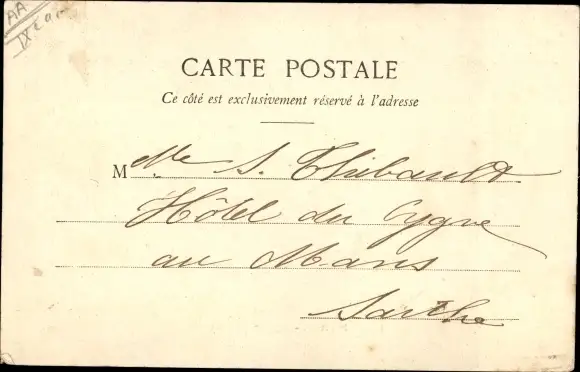 AA
IX
CARTE POSTALE
Ce côté est exclusivement réservé à l'adresse
M Mlle S. Thibault
Hôtel du Cygne
au Mans
Sarthe